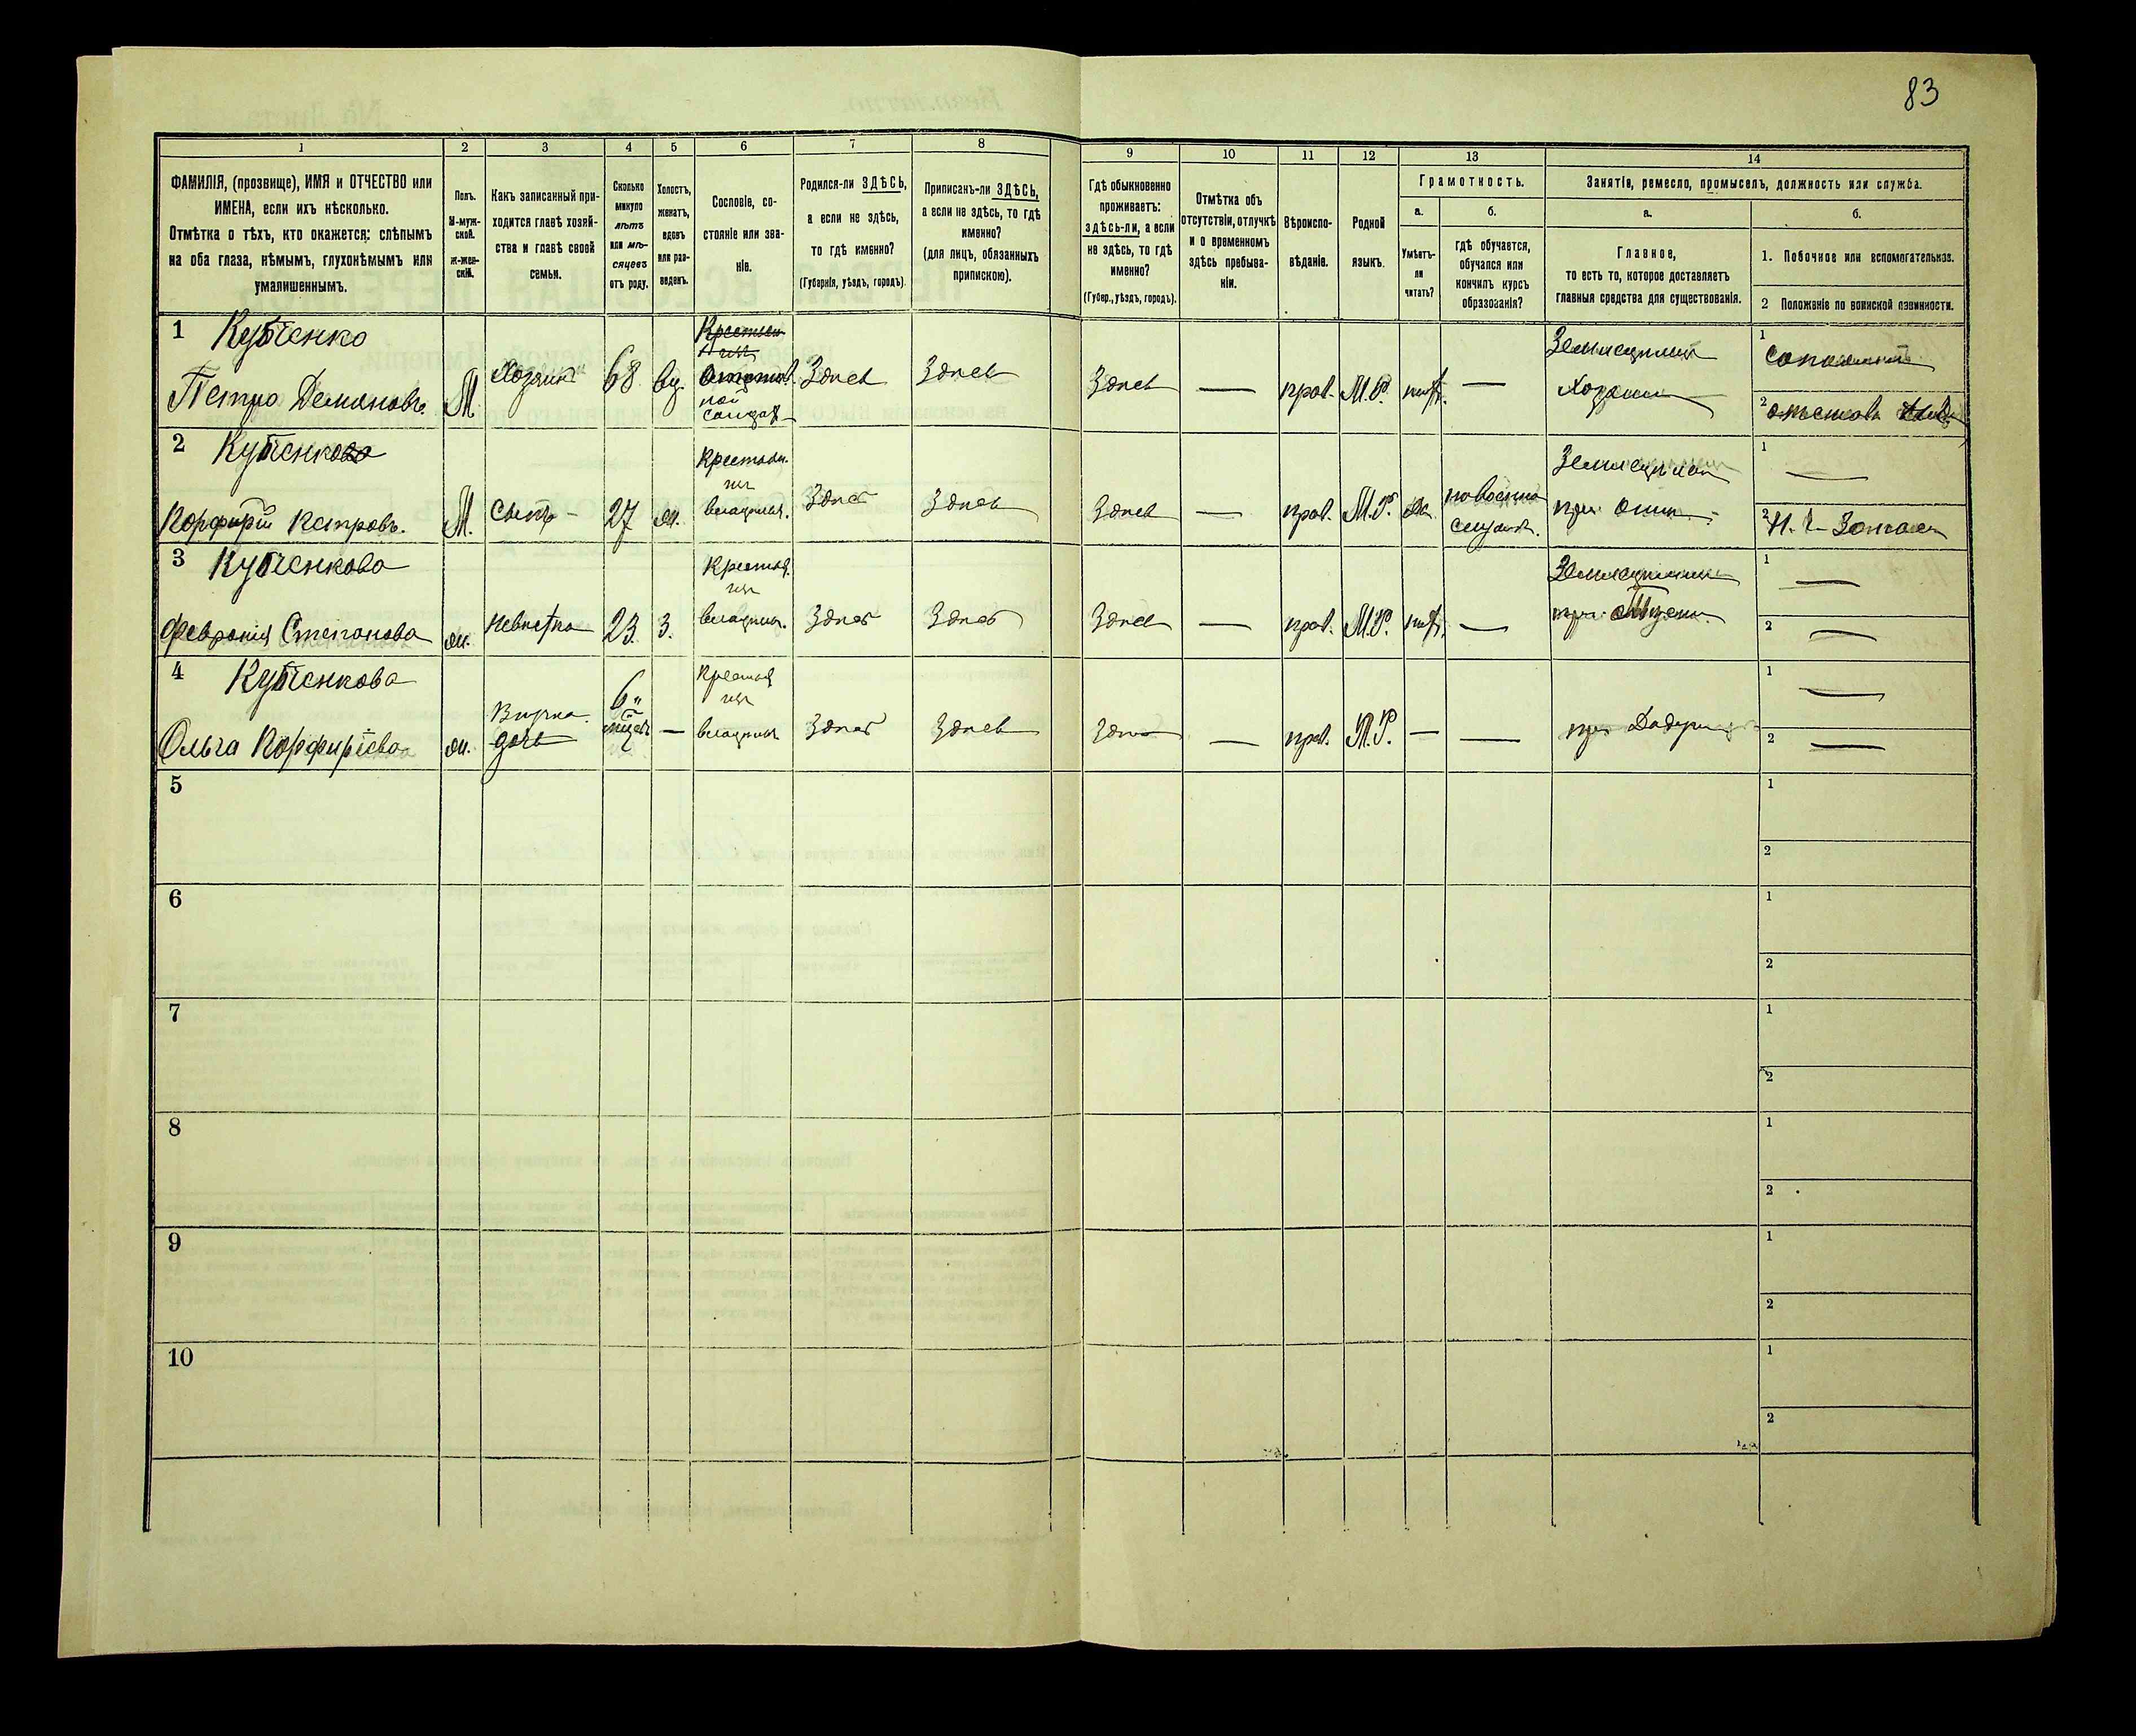 83
1
2
3
4
5
6
7
8
ФАМИЛІЯ, (прозвище), ИМЯ и ОТЧЕСТВО или
ИМЕНА, если ихъ нѣсколько.
Отмѣтка о тѣхъ, кто окажется: слѣпымъ
на оба глаза, нѣмымъ, глухонѣмымъ или
умалишеннымъ.
Полъ.
М-муж-
ской.
Ж-жен-
скій.
Какъ записанный при-
ходится главѣ хозяй-
ства и главѣ своей
семьи.
Сколько
минуло
лѣтъ
или мѣ-
сяцевъ
отъ роду.
Холостъ,
женатъ,
вдовъ
или раз-
веденъ.
Сословіе, со-
стояніе или зва-
ніе.
Родился-ли ЗДѢСЬ,
а если не здѣсь,
то гдѣ именно?
(Губернія, уѣздъ, городъ).
Приписанъ-ли ЗДѢСЬ,
а если не здѣсь, то гдѣ
именно?
(для лицъ, обязанныхъ
припискою).
9
10
11
12
13
14
Гдѣ обыкновенно
проживаетъ:
здѣсь-ли, а если
не здѣсь, то гдѣ
именно?
(Губер., уѣздъ, городъ).
Отмѣтка объ
отсутствіи, отлучкѣ
и о временномъ
здѣсь пребыва-
ніи.
Вѣроиспо-
вѣданіе.
Родной
языкъ.
Грамотность.
а.
б.
Умѣетъ-
ли
читать?
гдѣ обучается,
обучался или
кончилъ курсъ
образованія?
Занятіе, ремесло, промыселъ, должность или служба.
а.
б.
Главное,
то есть то, которое доставляетъ
главныя средства для существованія.
1. Побочное или вспомогательное.
2 Положеніе по воинской повинности.
1 Кубченко
Петро Демьяновъ. М. Хозяинъ 68 вд. Здѣсь Здѣсь Здѣсь — прав. М.Р. нѣтъ —
Хозяинъ
1
2
2 Кубченково
Порфирій Петровъ. М. Сынъ - 27 ж. Крестьян. владѣльч. Здѣсь Здѣсь Здѣсь — прав. М.Р. да
при отцѣ
1 —
2
3 Кубченкова
Февронія Степанова ж. невѣстка 23. З. владѣльч. Здѣсь Здѣсь Здѣсь — прав. М.Р. нѣтъ —
1 —
2 —
4 Кубченкова
Ольга Порфиріева ж. Внучка дочь 6 — владѣльч. Здѣсь Здѣсь Здѣсь — прав. М.Р. — —
1 —
2 —
5
1
2
6
1
2
7
1
2
8
1
2
9
1
2
10
1
2